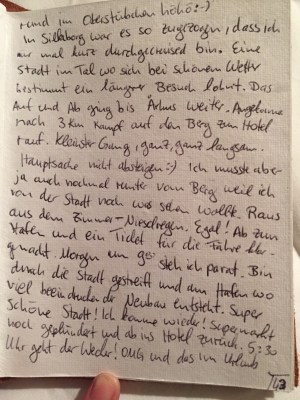 rund im Oberstübchen höhö :-)
In Silkeborg war es so zugezogen, dass ich
nur mal kurz durchgecruised bin. Eine
Stadt im Tal wo sich bei schönem Wetter
bestimmt ein längerer Besuch lohnt. Das
Auf und Ab ging bis Århus weiter. Angekommen
nach 3 km Kampf auf den Berg zum Hotel
rauf. Kleinster Gang, ganz, ganz langsam.
Hauptsache nicht absteigen :-) Ich musste aber
ja auch nochmal runter vom Berg weil ich
von der Stadt noch was sehen wollte. Raus
aus dem Zimmer - Nieselregen. Egal! Ab zum
Hafen und ein Ticket für die Fähre klar
gemacht. Morgen um steh ich parat. Bin
durch die Stadt gestreift und am Hafen wo
viel beeindruckende Neubau entsteht. Super
schöne Stadt! Ich komme wieder! Supermarkt
noch geplündert und ab ins Hotel zurück. 5:30
Uhr geht der Wecker! OMG und das im Urlaub
43